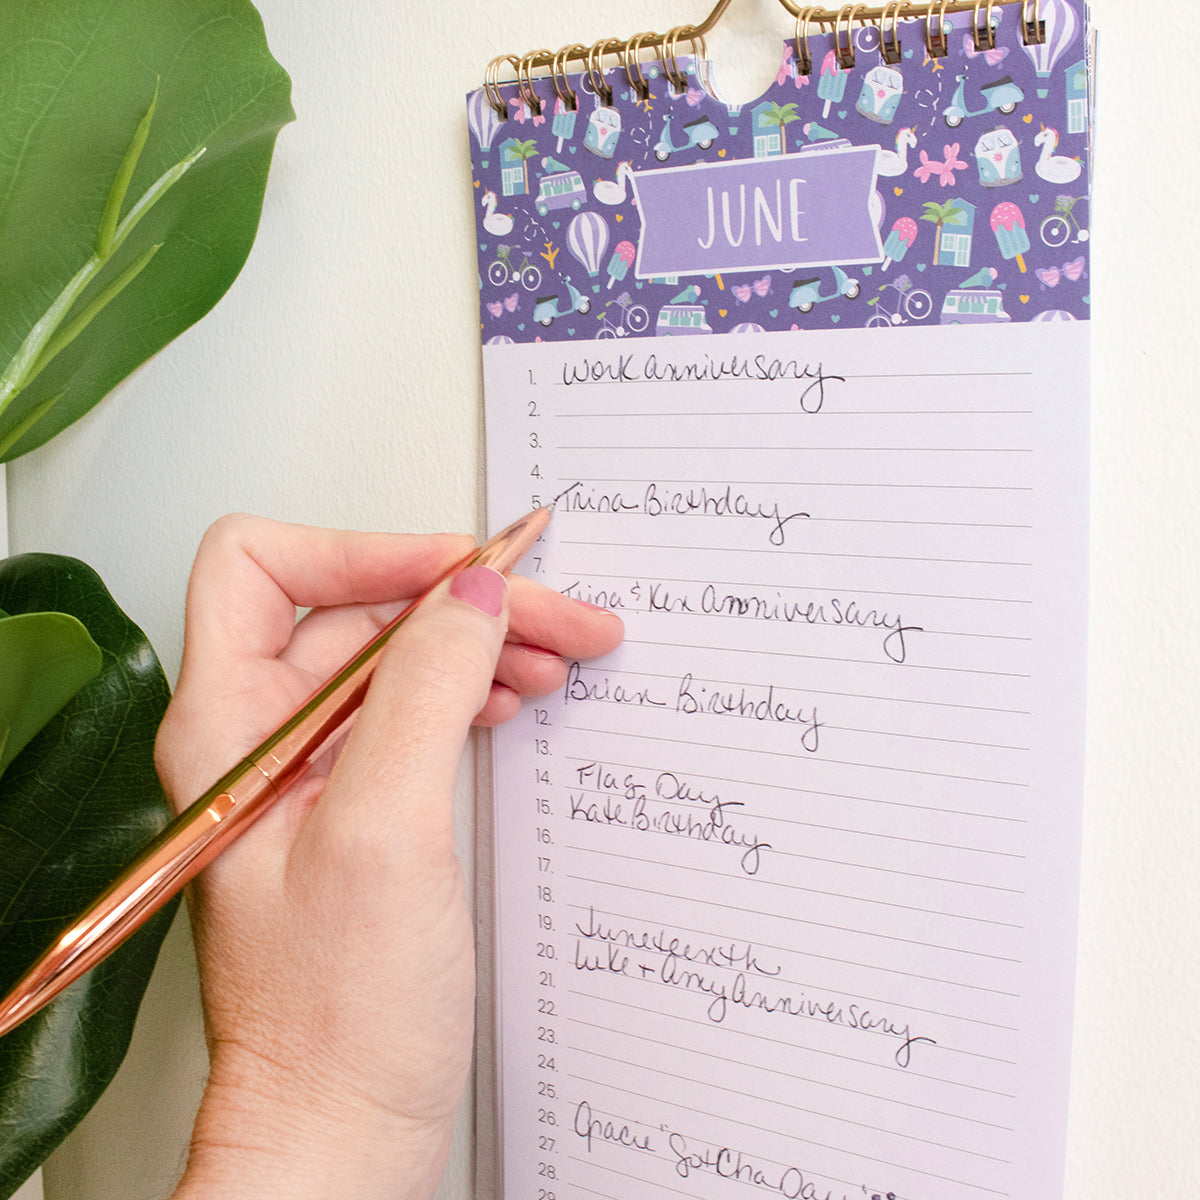 JUNE
1. Work Anniversary
2.
3.
4.
5. Trina Birthday
6.
7.
Trina & Kex Anniversary
Brian Birthday
12.
13.
14. Flag Day
15. Kate Birthday
16.
17.
18.
19. Juneteenth
20. Luke + Amy Anniversary
21.
22.
23.
24.
25.
26. Gracie "Gotcha Day"
27.
28.
29